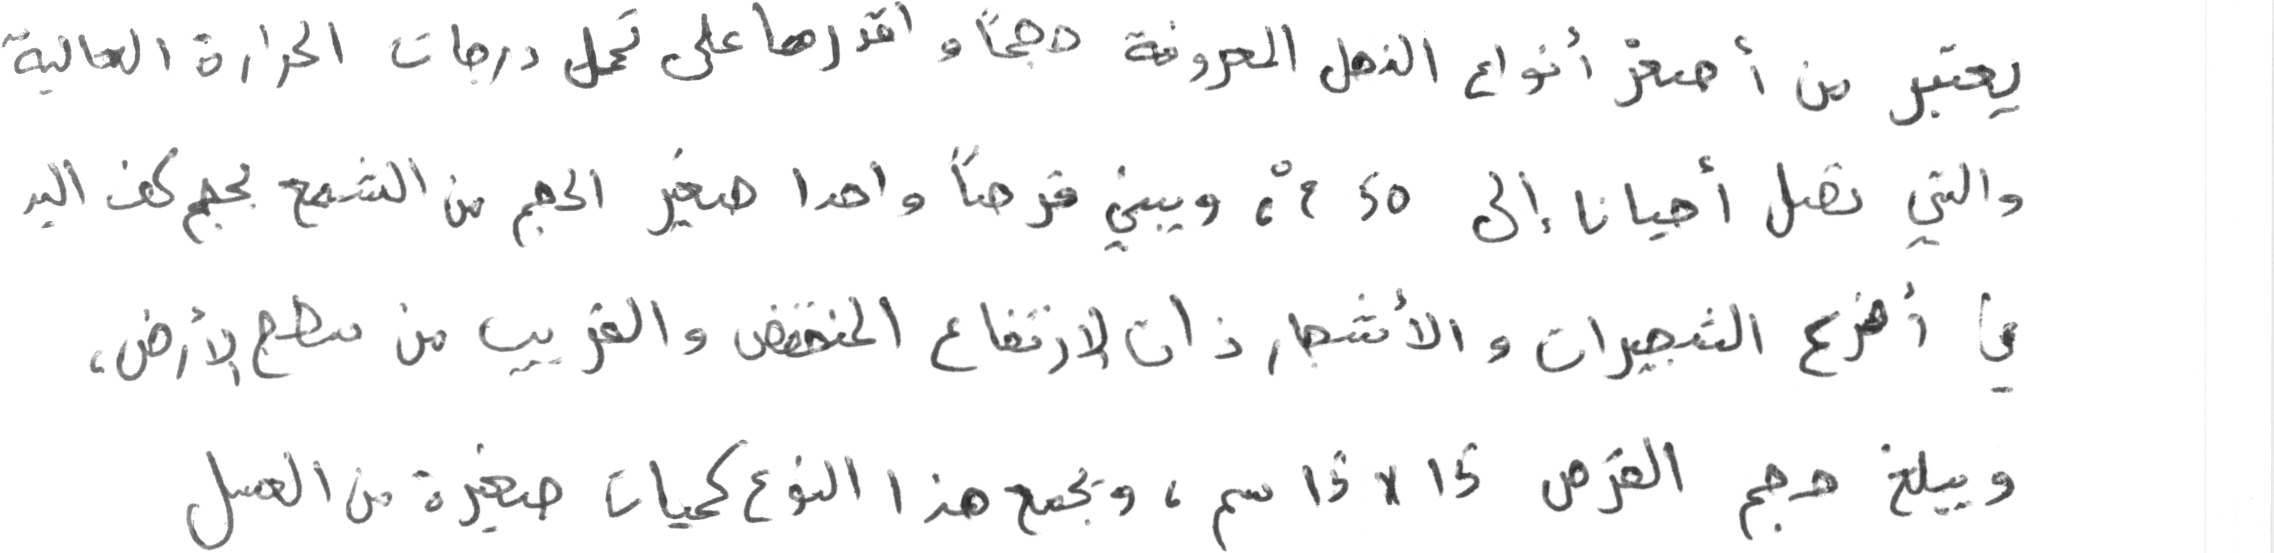 يعتبر من أصغر أنواع النحل المعروفة حجماً و اقدرها على تحمل درجات الحرارة العالية
والتي تصل أحيانا إلى 50 م°، ويبني قرصاً واحدا صغير الحجم من الشمع بحجم كف اليد
في أفرع الشجيرات و الأشجار ذات الارتفاع المنخفض والقريب من سطح الأرض،
ويبلغ حجم القرص 15 x 15 سم، ويجمع هذا النوع كميات صغيرة من العسل